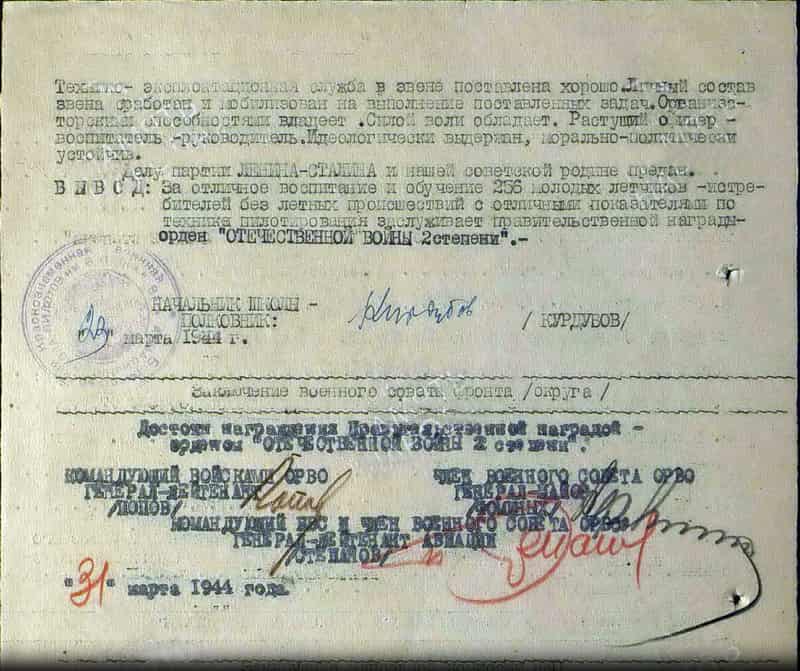 Технико- эксплоатационная служба в звене поставлена хорошо.Личный состав
звена сработан и мобилизован на выполнение поставленных задач.Организа-
торскими способностями владеет .Силой воли обладает. Растущий офицер -
-воспитатель -руководитель.Идеологически выдержан, морально-политически
устойчив.
Делу партии ЛЕНИНА-СТАЛИНА и нашей советской родине предан.
ВЫВОД: За отличное воспитание и обучение 256 молодых летчиков -истре-
бителей без летных происшествий с отличными показателями по
технике пилотирования заслуживает правительственной награды-
орден "ОТЕЧЕСТВЕННОЙ ВОЙНЫ 2степени".-
НАЧАЛЬНИК ШКОЛЫ -
ПОЛКОВНИК: Курдубов /КУРДУБОВ/
"29" марта 1944 г.
Заключение военного совета фронта /округа/
Достоин награждения Правительственной наградой -
орденом "ОТЕЧЕСТВЕННОЙ ВОЙНЫ 2 степени".
КОМАНДУЮЩИЙ ВОЙСКАМИ ОРВО ЧЛЕН ВОЕННОГО СОВЕТА ОРВО
ГЕНЕРАЛ-ЛЕЙТЕНАНТ ГЕНЕРАЛ-МАЙОР
/ПОПОВ/
КОМАНДУЮЩИЙ ВВС И ЧЛЕН ВОЕННОГО СОВЕТА ОРВО
ГЕНЕРАЛ-ЛЕЙТЕНАНТ АВИАЦИИ
/СТЕПАНОВ/
"31" марта 1944 года